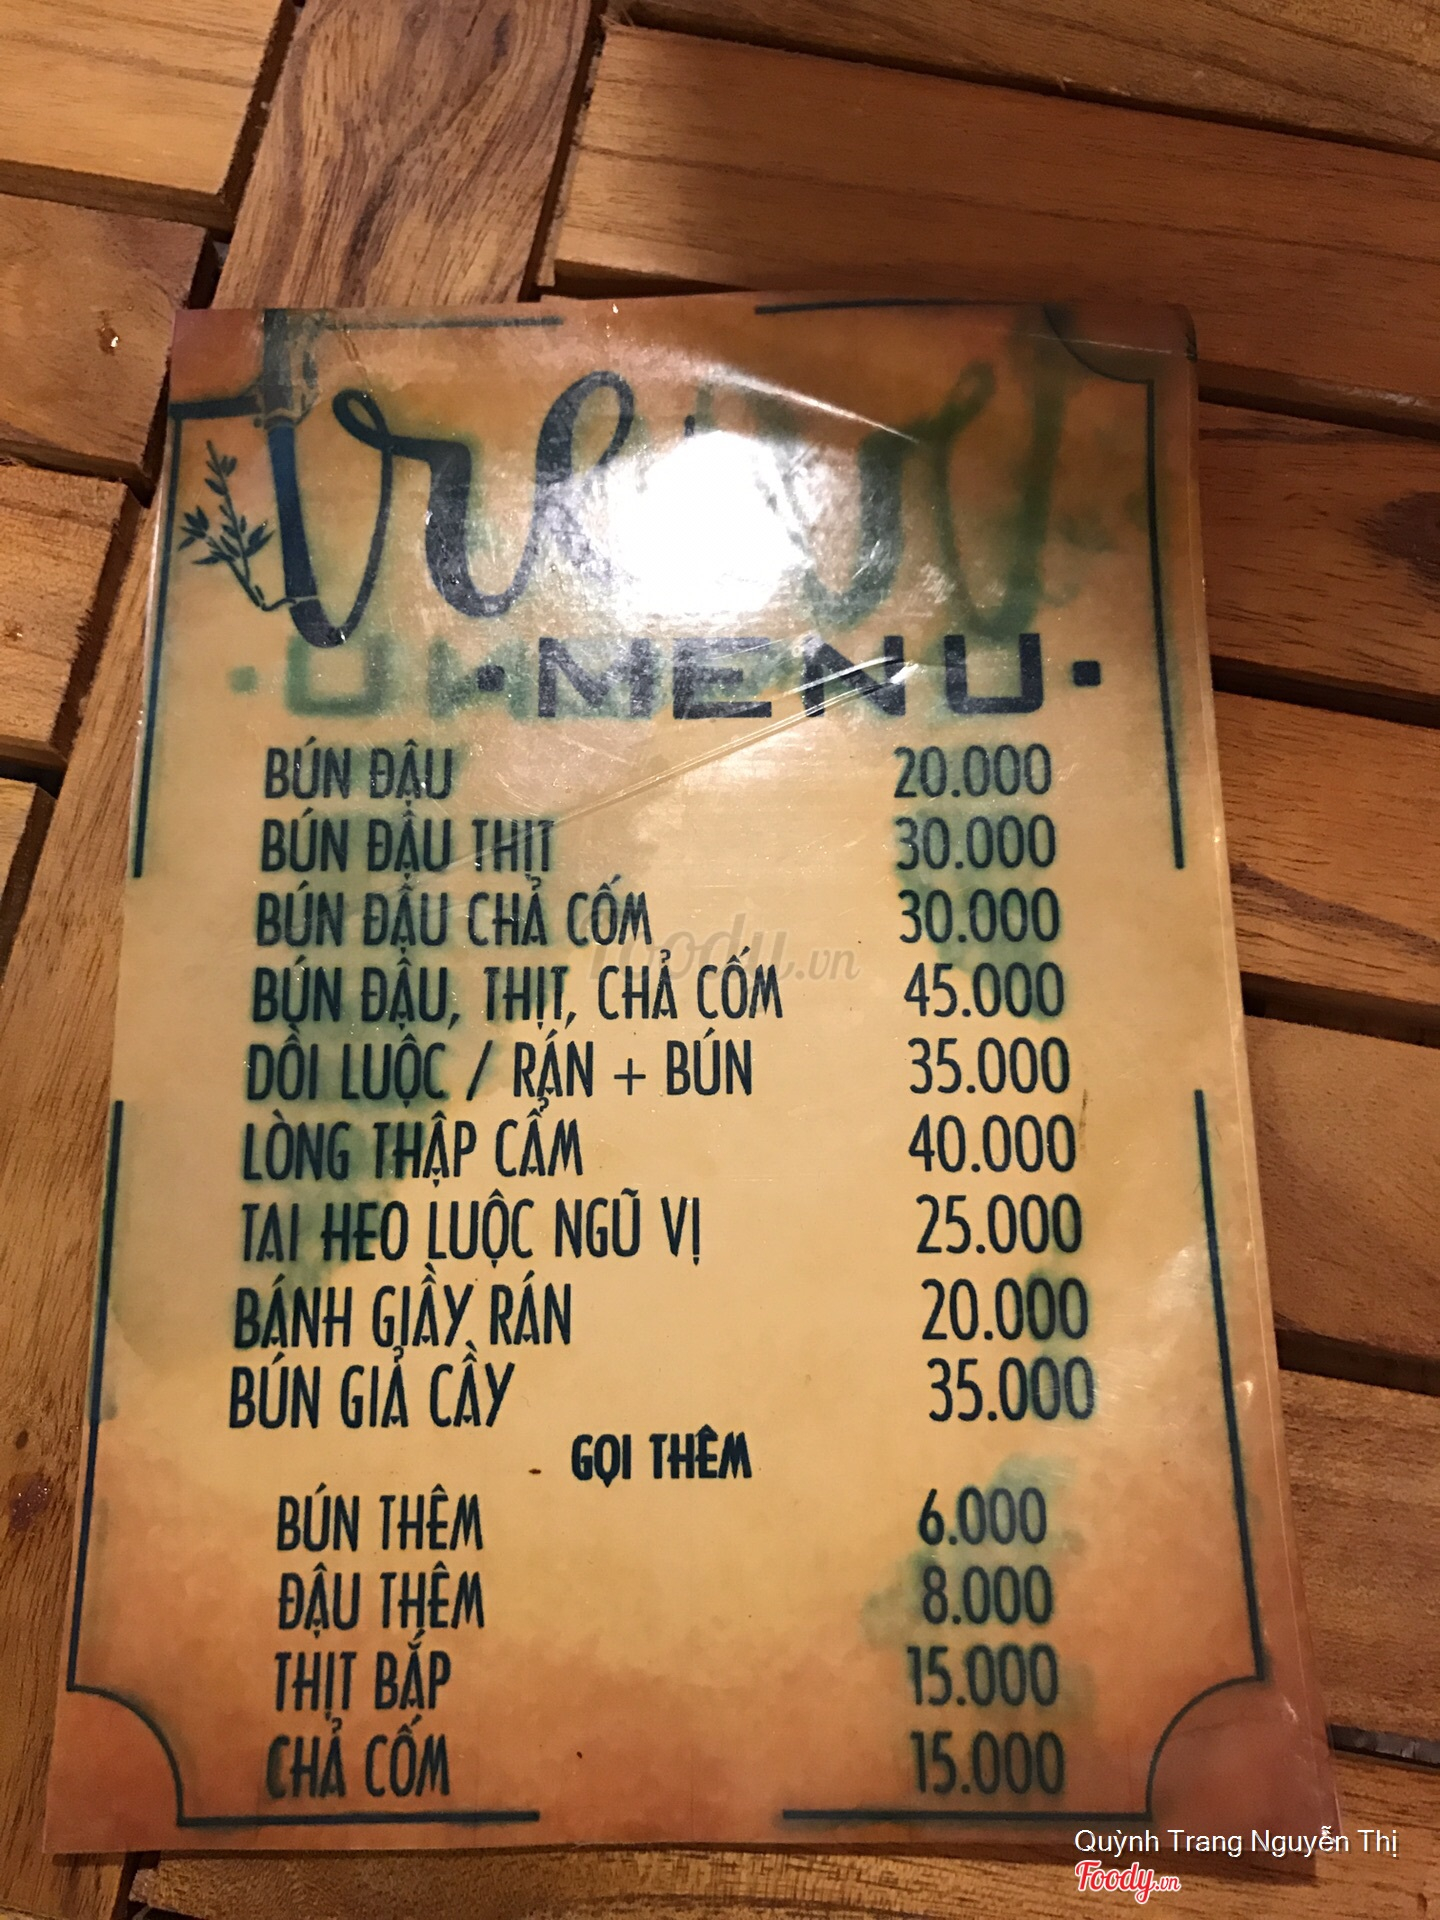 MENU
BÚN ĐẬU 20.000
BÚN ĐẬU THỊT 30.000
BÚN ĐẬU CHẢ CỐM 30.000
BÚN ĐẬU, THỊT, CHẢ CỐM 45.000
DỒI LUỘC / RÁN + BÚN 35.000
LÒNG THẬP CẨM 40.000
TAI HEO LUỘC NGŨ VỊ 25.000
BÁNH GIẦY RÁN 20.000
BÚN GIẢ CẦY 35.000
GỌI THÊM
BÚN THÊM 6.000
ĐẬU THÊM 8.000
THỊT BẮP 15.000
CHẢ CỐM 15.000
Foody.vn
Quỳnh Trang Nguyễn Thị
Foody.vn